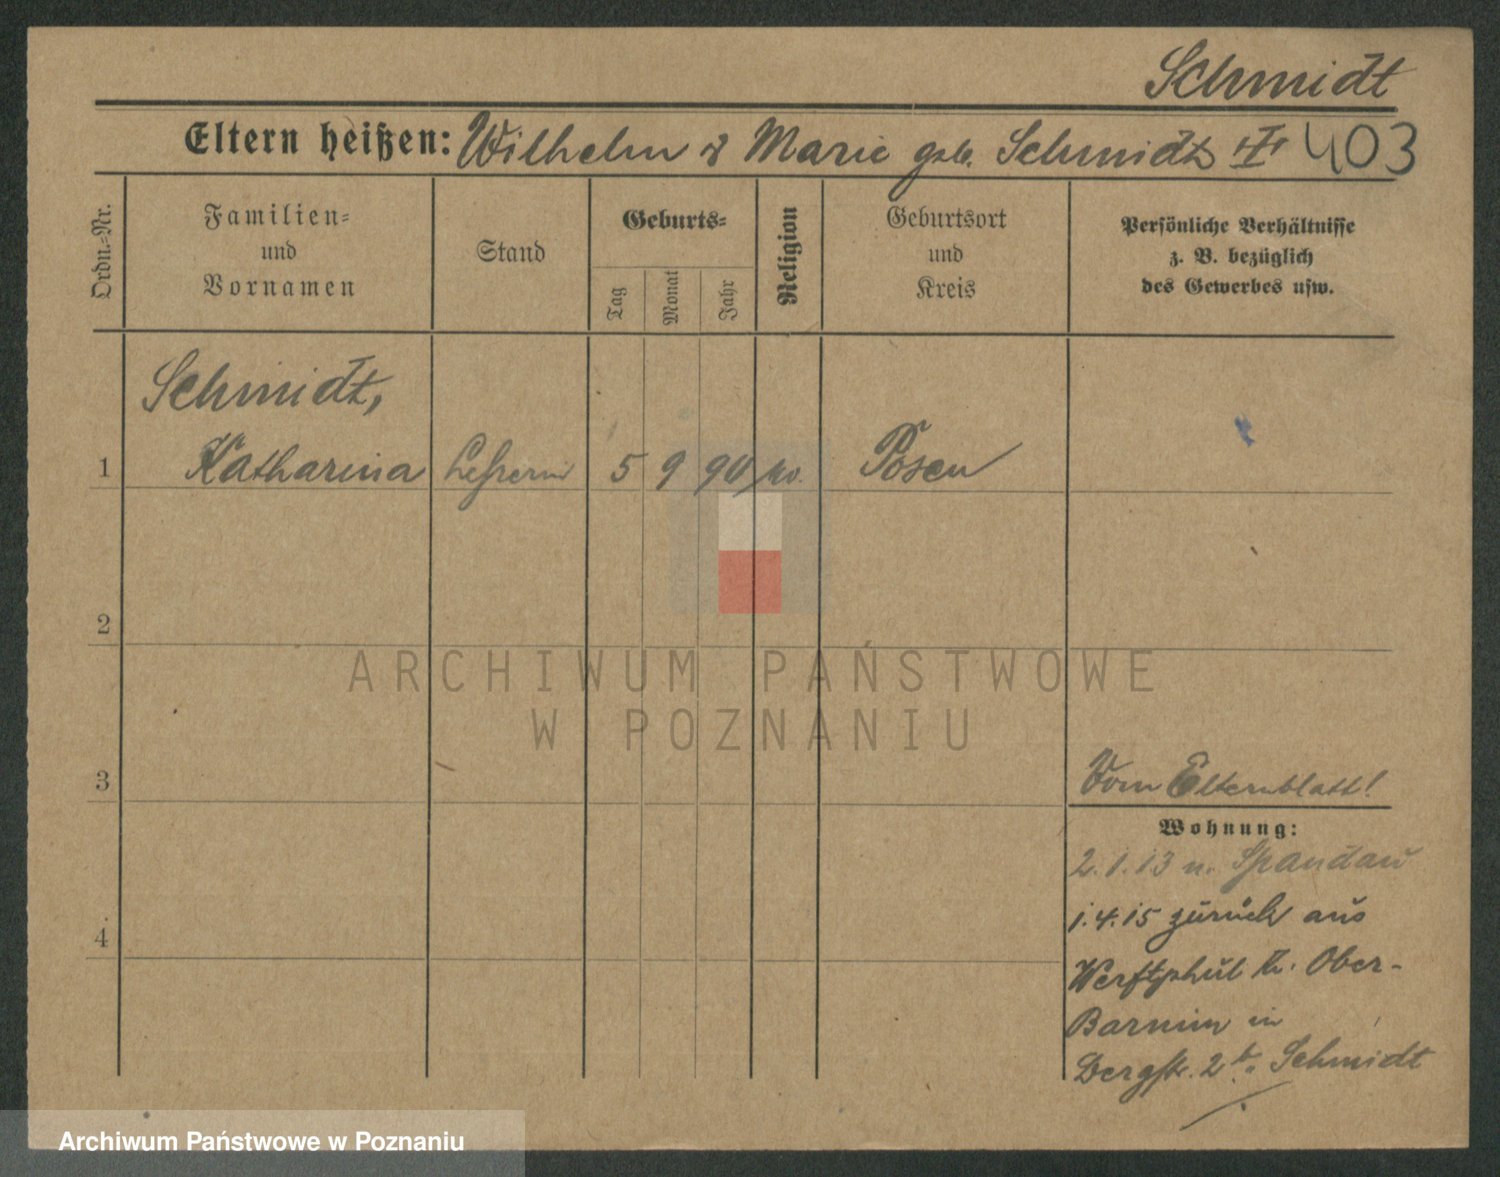 Schmidt
Eltern heißen: Wilhelm & Marie geb. Schmidt III 403
Ordn.-Nr.
Familien-
und
Vornamen
Stand
Geburts-
Tag
Monat
Jahr
Religion
Geburtsort
und
Kreis
Persönliche Verhältnisse
z. B. bezüglich
des Gewerbes usw.
Schmidt,
1 Katharina Lehrerin 5 9 90 Posen
2
3
Vom Elternblatt!
Wohnung:
2.1.13 n. Spandau
4
1.4.15 zurück aus
Werftpfuhl Kr. Ober-
Barnim in
2 b. Schmidt
ARCHIWUM PAŃSTWOWE
W POZNANIU
Archiwum Państwowe w Poznaniu